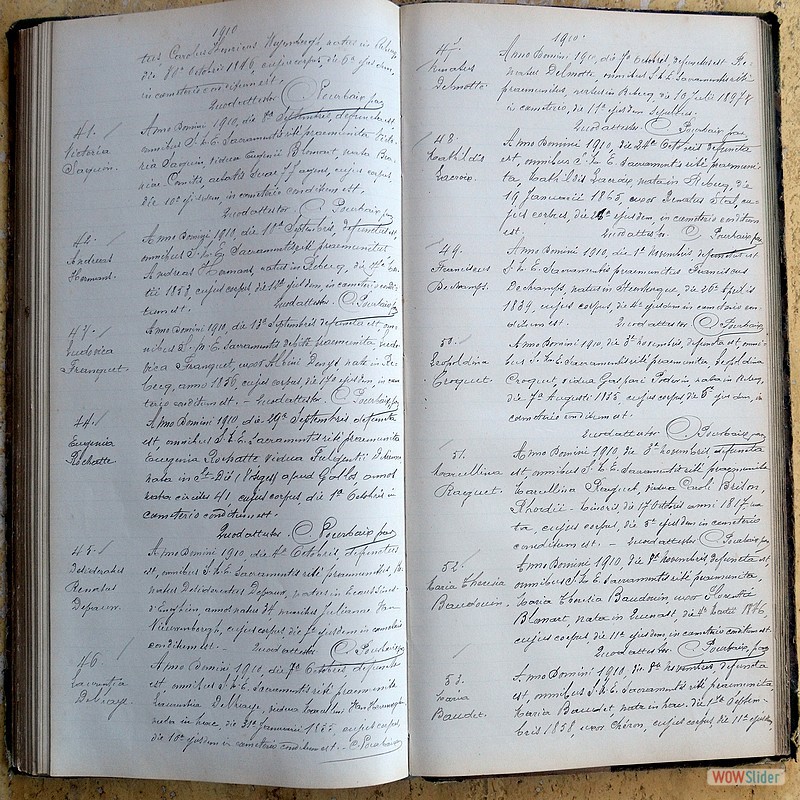 1910
tus, Carolus Henricus natus in
die 30 Octobris 1846, cujus corpus, die 6a ejusdem,
in cœmeterio conditum est.
Quod attestor. C. Pourbaix, par
41.
Victoria
Saquin.
Anno Domini 1910, die 8a Septembris, defuncta est,
omnibus S. M. E. Sacramentis rité praemunita Victo-
ria Saquin, vidua Eugenii Blomart, nata
cujus corpus
die 10a ejusdem, in cœmeterio conditum est.
Quod attestor. C. Pourbaix, par
42.
Andreas
Hermant.
Anno Domini 1910, die 10a Septembris, defunctus est,
omnibus S. M. E. Sacramentis rité praemunitus
Andreas Hermant, natus in Rebecq, die
1853, cujus corpus die 12a ejusdem, in cœmeterio condi-
tum est. Quod attestor C. Pourbaix, par
47.
Ludovica
Franquet.
Anno Domini 1910, die 13a Septembris defuncta est, om-
nibus S. M. E. Sacramentis debité praemunita, Ludo-
vica Franquet, uxor Albini Denys nata in Re-
becq, anno 1850, cujus corpus, die 17a ejusdem, in cœme-
terio conditum est. - Quod attestor. C. Pourbaix, par
44.
Eugenia
Rochatte.
Anno Domini 1910, die 29a Septembris defuncta
est omnibus S. M. E. Sacramentis rité praemunita
Eugenia Rochatte vidua Fulgentii
nata in St. Dié (Vosges) apud Gallos annos
nata circiter 41 cujus corpus, die 1a Octobris in
cœmeterio conditum est.
Quod attestor. C. Pourbaix, par
45.
Desideratus
Renatus
Depauw.
Anno Domini 1910, die 4a Octobris, defunctus
est, omnibus S. M. E. Sacramentis rité praemunitus, Re-
natus Desideratus Depauw, natus in Ecaussines
d'Enghien, annos natus 24, maritus Julianae Van
Nieuwenborgh, cujus corpus, die ejusdem in cœmeterio
conditum est. - Quod attestor. C. Pourbaix, par
46
Laurentia
Delhaye.
Anno Domini 1910, die 7a Octobris, defuncta
est, omnibus S. M. E. Sacramentis rité praemunita
Laurentia Delhaye, vidua
nata in hac, die 31a Januarii 1855, cujus corpus,
die 10a ejusdem in cœmeterio conditum est. - C. Pourbaix
1910.
47.
Renatus
Delmotte.
Anno Domini 1910, die 9a Octobris, defunctus est Re-
natus Delmotte, omnibus S. M. E. Sacramentis rité
praemunitus, natus in Rebecq, die 10 Julii 1897
in cœmeterio, die 11a ejusdem sepultus.
Quod attestor C. Pourbaix, par
48.
Mathildis
Lacroix.
Anno Domini 1910, die 24a Octobris defuncta
est, omnibus S. M. E. Sacramentis rité praemuni-
ta Mathildis Lacroix, nata in Rebecq, die
19 Januarii 1865, uxor Renatus Stal, cu-
jus corpus, die ejusdem, in cœmeterio conditum
est. Quod attestor C. Pourbaix, par
49.
Franciscus
Dechamps.
Anno Domini 1910, die 1a Novembris, defunctus est
S. M. E. Sacramentis praemunitus Franciscus
Dechamps, natus in Steenkerque, die 20a Aprilis
1834, cujus corpus, die 4a ejusdem in cœmeterio con-
ditum est. Quod attestor C. Pourbaix
50.
Leopoldina
Croquet.
Anno Domini 1910, die 3a Novembris, defuncta est, omni-
bus S. M. E. Sacramentis rité praemunita, Leopoldina
Croquet, vidua Gaspari nata in Rebecq,
die 7a Augusti 1835 cujus corpus die 6a ejusdem, in
cœmeterio conditum est.
Quod attestor C. Pourbaix, par
51.
Marcellina
Raquet.
Anno Domini 1910, die 5a Novembris, defuncta
est, omnibus S. M. E. Sacramentis rité praemunita
Marcellina Raquet, vidua Caroli Brison,
die 17 Octobris anni 1817, na-
ta, cujus corpus, die 8a ejusdem in cœmeterio
conditum est. - Quod attestor C. Pourbaix, par
52.
Maria Theresia
Baudouin.
Anno Domini 1910, die 9a Novembris, defuncta est
omnibus S. M. E. Sacramentis rité praemunita,
Maria Theresia Baudouin, uxor Florentii
Blomart, nata in Quenast, die Martii 1876,
cujus corpus, die 11a ejusdem, in cœmeterio conditum est.
Quod attestor. C. Pourbaix, par
53.
Maria
Baudet.
Anno Domini 1910, die 8a Novembris, defuncta
est, omnibus S. M. E. Sacramentis rité praemunita,
Maria Baudet, nata in hac, die 1a Septem-
bris 1838, uxor Chéron, cujus corpus, die 11a ejusdem,
WOWSlider